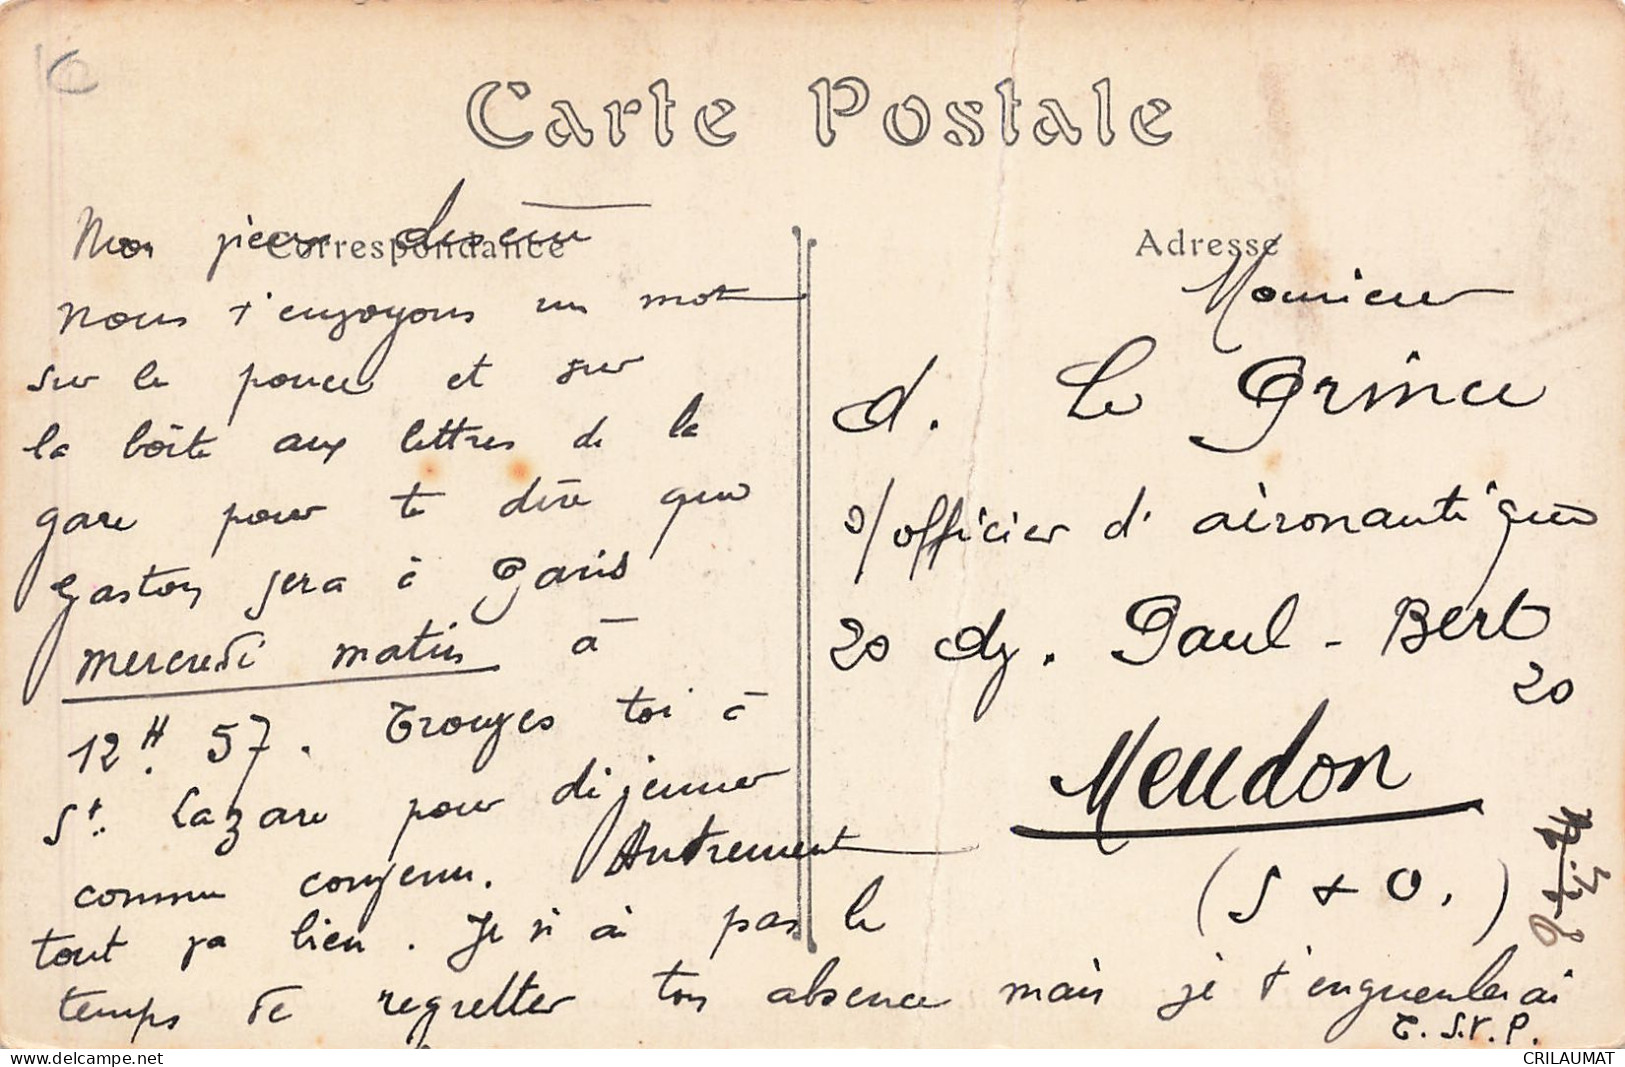 Carte Postale
Correspondance
Adresse
Mon pierre
nous t'envoyons un mot
sur le pouce et sur
la boîte aux lettres de la
gare pour te dire que
Gaston sera à Paris
mercredi matin à
12 H. 57. Trouves toi à
St. Lazare pour déjeuner
comme convenu. Autrement
tout va bien. Je n'ai pas le
temps de regretter ton absence mais je t'engueulerai
T. S.V.P.
Monsieur
d. Le Prince
s/officier d'aéronautique
20 Paul-Bert 20
Meudon
(S & O.)
CRILAUMAT